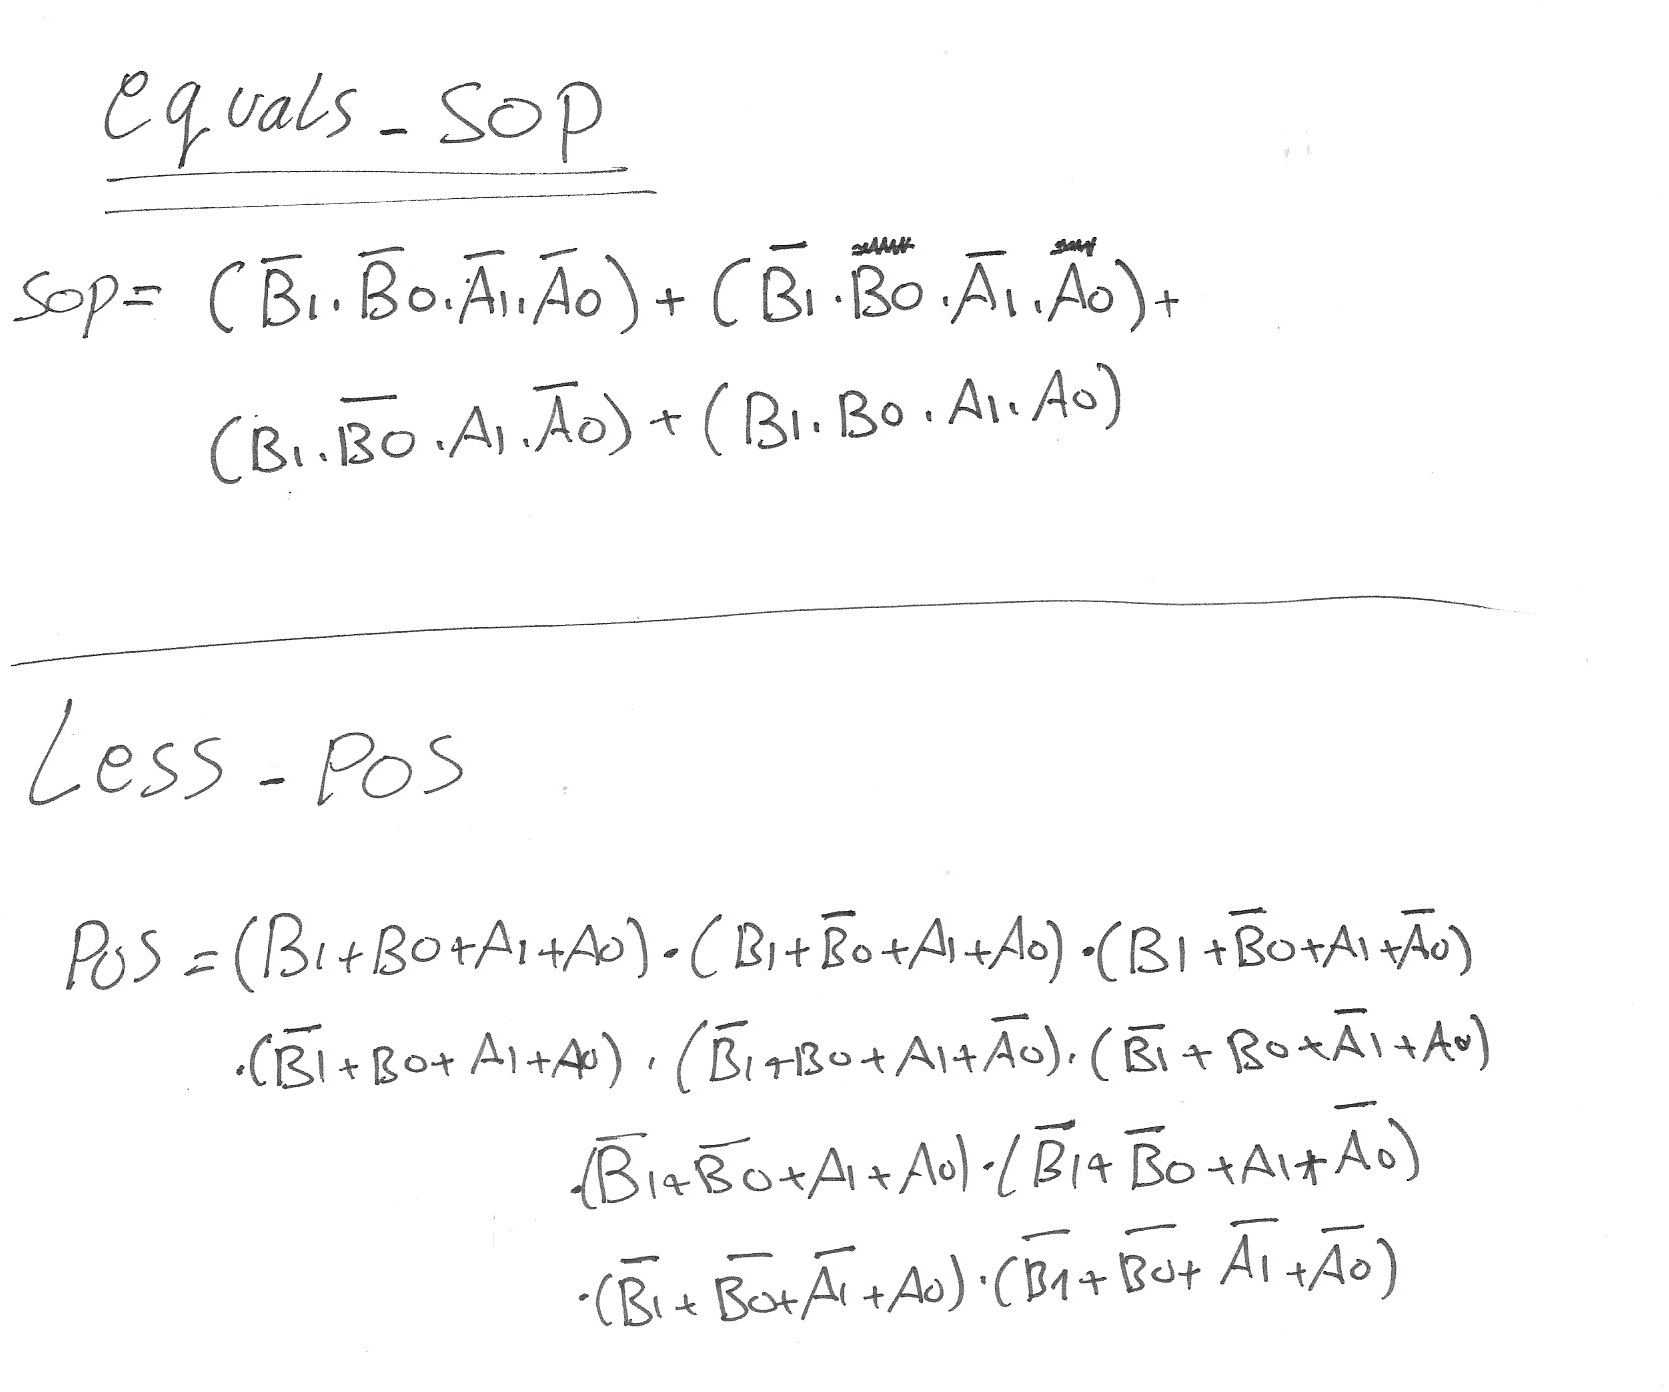 equals_SOP
SOP= (B̅1.B̅0.A̅1.A̅0)+(B̅1.B0.A̅1.A0)+
(B1.B̅0.A1.A̅0)+(B1.B0.A1.A0)
Less-POS
POS=(B1+B0+A1+A0).(B1+B̅0+A1+A0).(B1+B̅0+A1+A̅0)
.(B̅1+B0+A1+A0).(B̅1+B0+A1+A̅0).(B̅1+B0+A̅1+A0)
.(B̅1+B̅0+A1+A0).(B̅1+B̅0+A1+A̅0)
.(B̅1+B̅0+A̅1+A0).(B̅1+B̅0+A̅1+A̅0)